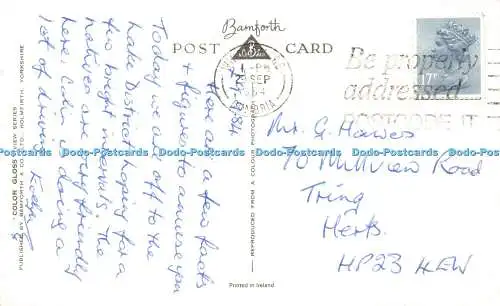 Bamforth
POST CARD
1 - PM
SEP
1984
CUMBRIA
Be properly
addressed
POSTCODE IT
17P
Here are a few facts
& figures to amuse you
Today we are off to the
Lake District hoping for a
few bright intervals. The
natives are very friendly
here. Colin is doing a
lot of driving.
Mr. G. Hawes
70 Millview Road
Tring
Herts.
HP23 4EW
"COLOR GLOSS" VIEW SERIES
PUBLISHED BY BAMFORTH & CO LTD., HOLMFIRTH, YORKSHIRE
REPRODUCED FROM A COLOUR PHOTOGRAPH
Printed in Ireland
Dodo-Postcards Dodo-Postcards Dodo-Postcards Dodo-Postcards